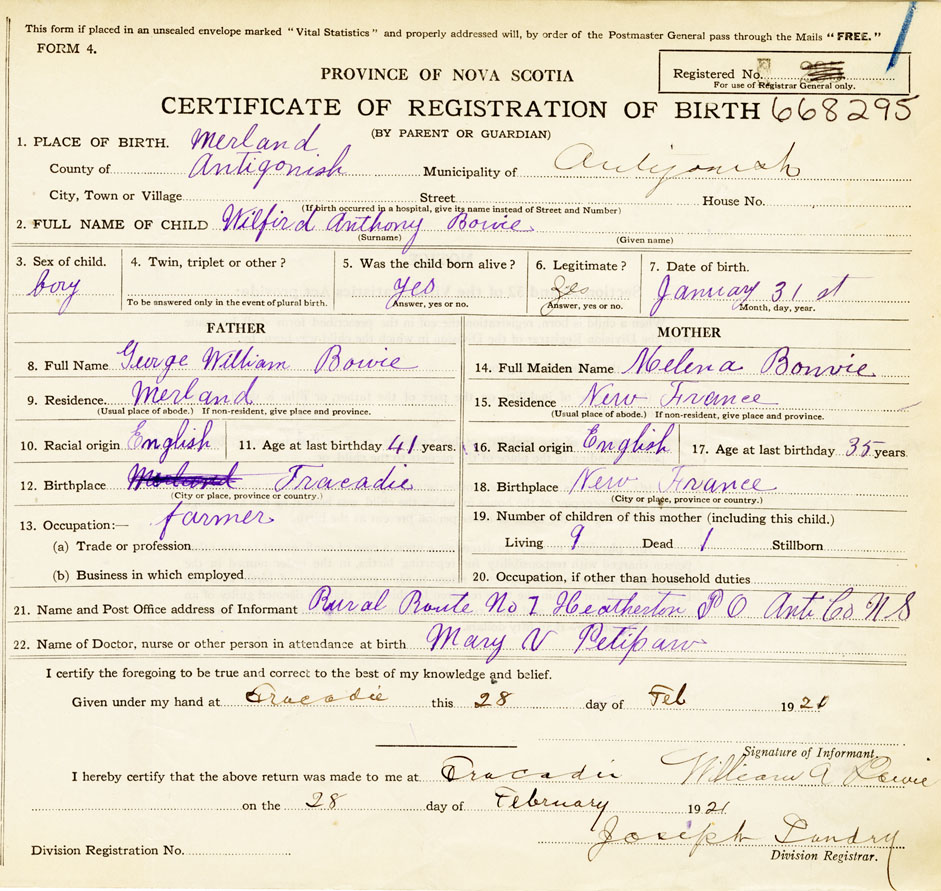 This form if placed in an unsealed envelope marked "Vital Statistics" and properly addressed will, by order of the Postmaster General pass through the Mails "FREE."
FORM 4.
PROVINCE OF NOVA SCOTIA
Registered No.
For use of Registrar General only.
CERTIFICATE OF REGISTRATION OF BIRTH 668295
(BY PARENT OR GUARDIAN)
1. PLACE OF BIRTH. Merland
County of Antigonish Municipality of Antigonish
City, Town or Village Street House No.
(If birth occurred in a hospital, give its name instead of Street and Number)
2. FULL NAME OF CHILD Wilfird Anthony Bowie
(Surname) (Given name)
3. Sex of child. 4. Twin, triplet or other ? 5. Was the child born alive ? 6. Legitimate ? 7. Date of birth.
boy yes yes January 31 st
To be answered only in the event of plural birth. Answer, yes or no. Answer, yes or no. Month, day, year.
FATHER
8. Full Name George William Bowie
9. Residence. Merland
(Usual place of abode.) If non-resident, give place and province.
10. Racial origin English 11. Age at last birthday 41 years.
12. Birthplace Tracadie
(City or place, province or country.)
13. Occupation:— farmer
(a) Trade or profession
(b) Business in which employed
MOTHER
14. Full Maiden Name Melena Bonvie
15. Residence. New France
(Usual place of abode.) If non-resident, give place and province.
16. Racial origin English 17. Age at last birthday 35 years.
18. Birthplace New France
(City or place, province or country.)
19. Number of children of this mother (including this child.)
Living 9 Dead 1 Stillborn
20. Occupation, if other than household duties
21. Name and Post Office address of Informant Rural Route No 1 Heatherton P O Anti Co N S
22. Name of Doctor, nurse or other person in attendance at birth Mary V Petipaw
I certify the foregoing to be true and correct to the best of my knowledge and belief.
Given under my hand at Tracadie this 28 day of Feb 1921
Signature of Informant.
I hereby certify that the above return was made to me at Tracadie William A Bowie
on the 28 day of February 1921
Joseph Landry
Division Registration No. Division Registrar.